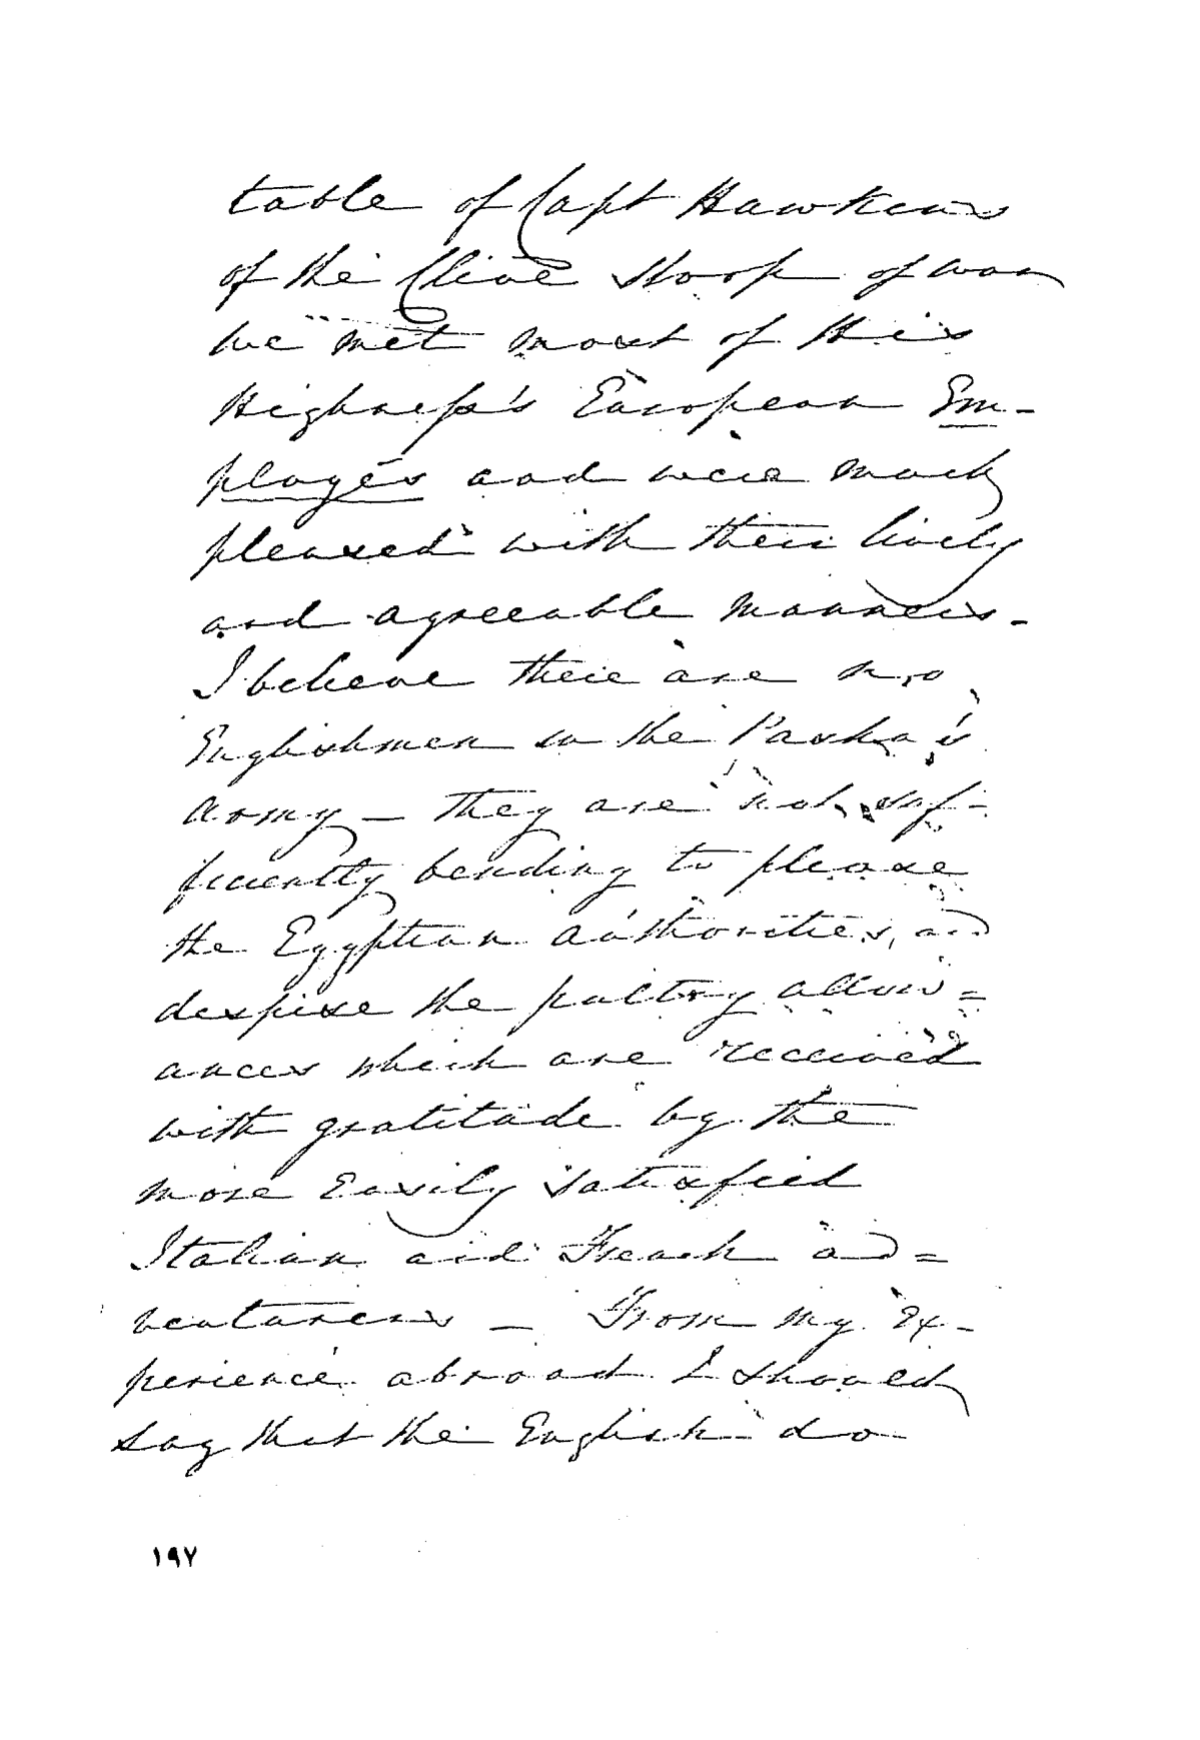 table of Capt Hawkins
of the Clive Sloop of war
we met most of His
Highness's European Em-
ployés and were much
pleased with their lively
and agreeable manners -
I believe there are no
Englishmen in the Pasha's
army - they are not suf-
ficiently bending to please
the Egyptian authorities, and
despise the paltry allow=
ances which are received
with gratitude by the
more easily satisfied
Italian and French ad=
venturers - From my ex-
perience abroad I should
say that the English do
١٩٧